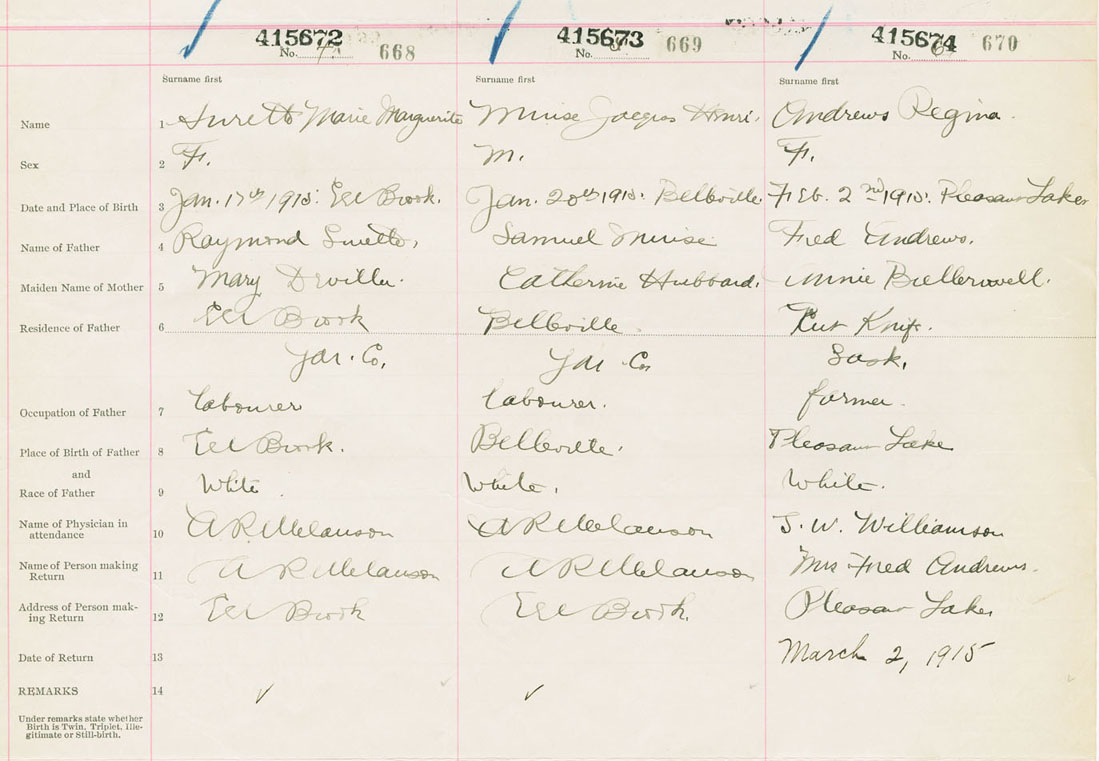 415672 415673 415674
No. 668 No. 669 No. 670
Surname first Surname first Surname first
Name 1 Surette Marie Marguerite Muise Jacques Henri. Andrews Regina.
Sex 2 F. M. F.
Date and Place of Birth 3 Jan. 17th 1915. Eel Brook. Jan. 20th 1915. Belleville. Feb. 2nd 1915. Pleasant Lake
Name of Father 4 Raymond Surette. Samuel Muise Fred Andrews.
Maiden Name of Mother 5 Mary Deviller. Catherine Hubbard. Annie
Residence of Father 6 Eel Brook Belleville Cut Knife.
Yar. Co. Yar Co Sask.
Occupation of Father 7 Labourer Labourer. farmer.
Place of Birth of Father 8 Eel Brook. Belleville. Pleasant Lake
and
Race of Father 9 White. White. White.
Name of Physician in
attendance 10 A R Melanson A R Melanson J. W. Williamson
Name of Person making
Return 11 A R Melanson A R Melanson Mrs Fred Andrews.
Address of Person mak-
ing Return 12 Eel Brook Eel Brook. Pleasant Lake
Date of Return 13 March 2, 1915
REMARKS 14 ✓ ✓
Under remarks state whether
Birth is Twin, Triplet, Ille-
gitimate or Still-birth.